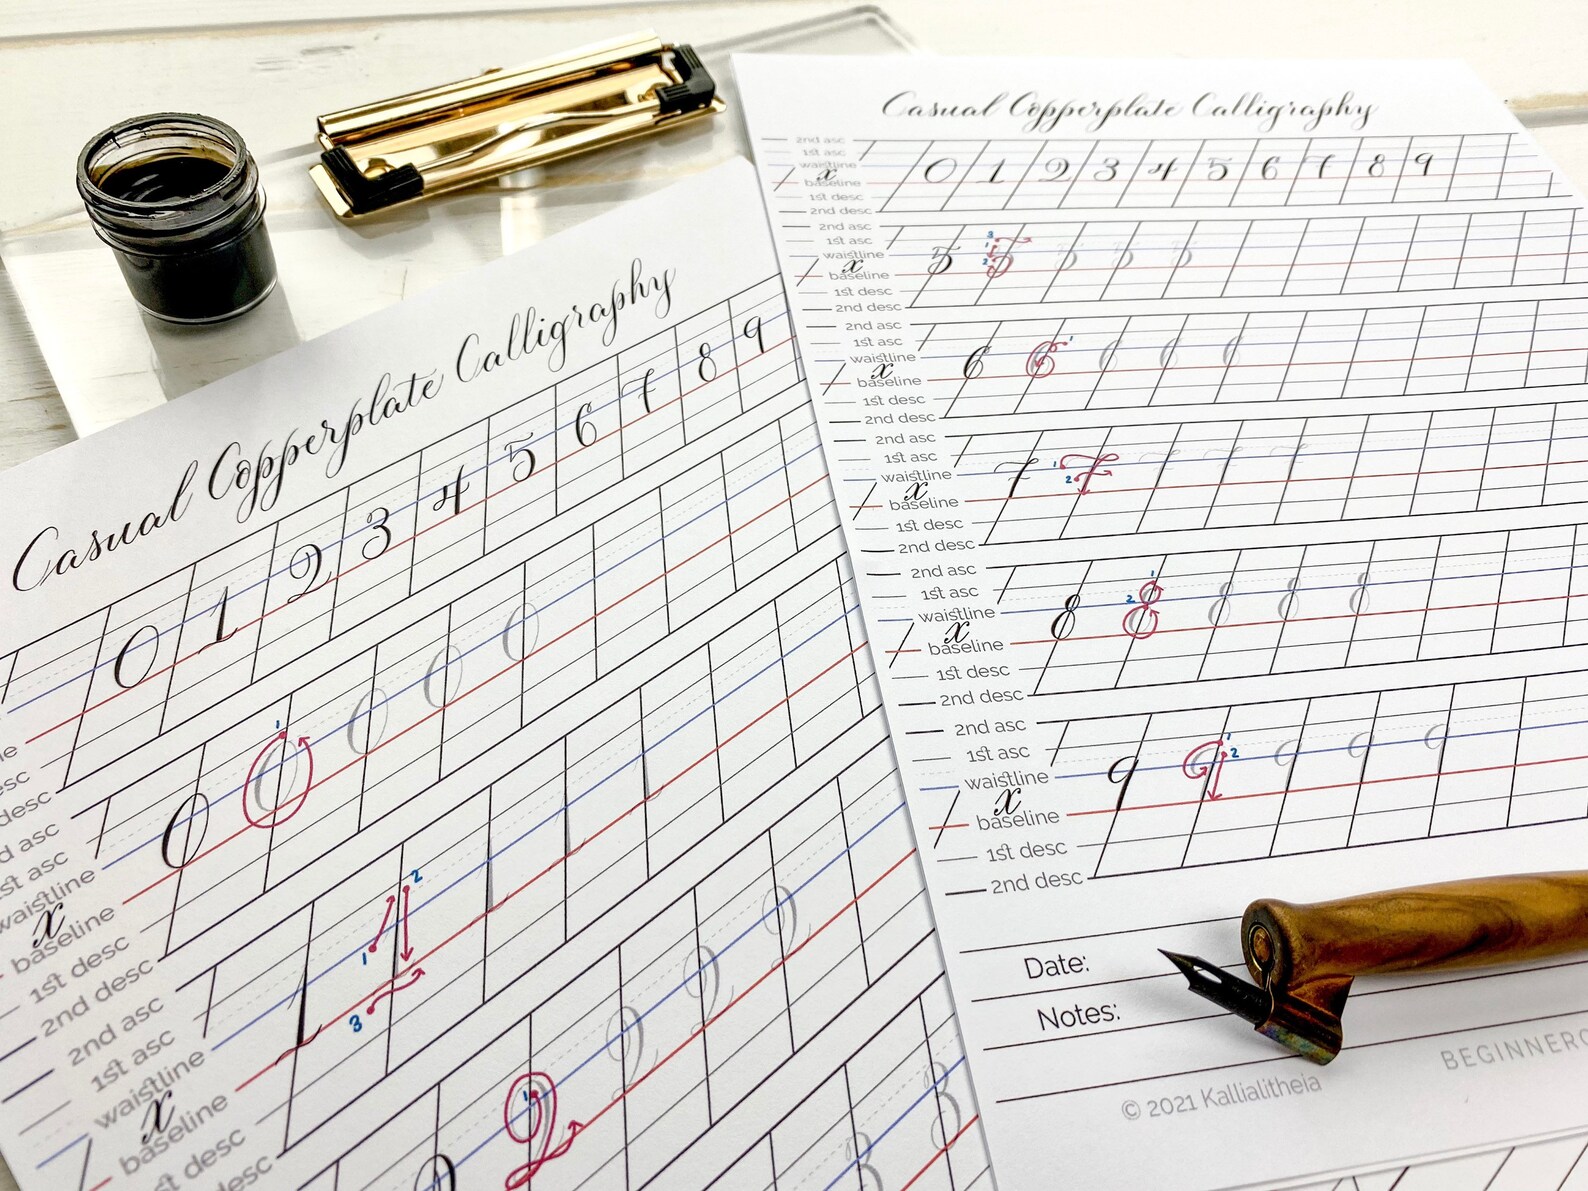 Casual Copperplate Calligraphy
0 1 2 3 4 5 6 7 8 9
0 1 0 0 0
waistline
x
baseline
1st desc
2nd desc
1 1 2 3 1 1 1
2nd asc
1st asc
waistline
x
baseline
2 1 2 2 2
3 3
Casual Copperplate Calligraphy
2nd asc
1st asc
waistline
x
baseline
1st desc
2nd desc
0 1 2 3 4 5 6 7 8 9
2nd asc
1st asc
waistline
x
baseline
1st desc
2nd desc
5 1 2 3 5 5 5 5
2nd asc
1st asc
waistline
x
baseline
1st desc
2nd desc
6 1 6 6 6 6
2nd asc
1st asc
waistline
x
baseline
1st desc
2nd desc
7 1 2 7 7 7 7
2nd asc
1st asc
waistline
x
baseline
1st desc
2nd desc
8 1 2 8 8 8 8
2nd asc
1st asc
waistline
x
baseline
1st desc
2nd desc
9 1 2 9 9 9 9
Date:
Notes:
© 2021 Kallialitheia